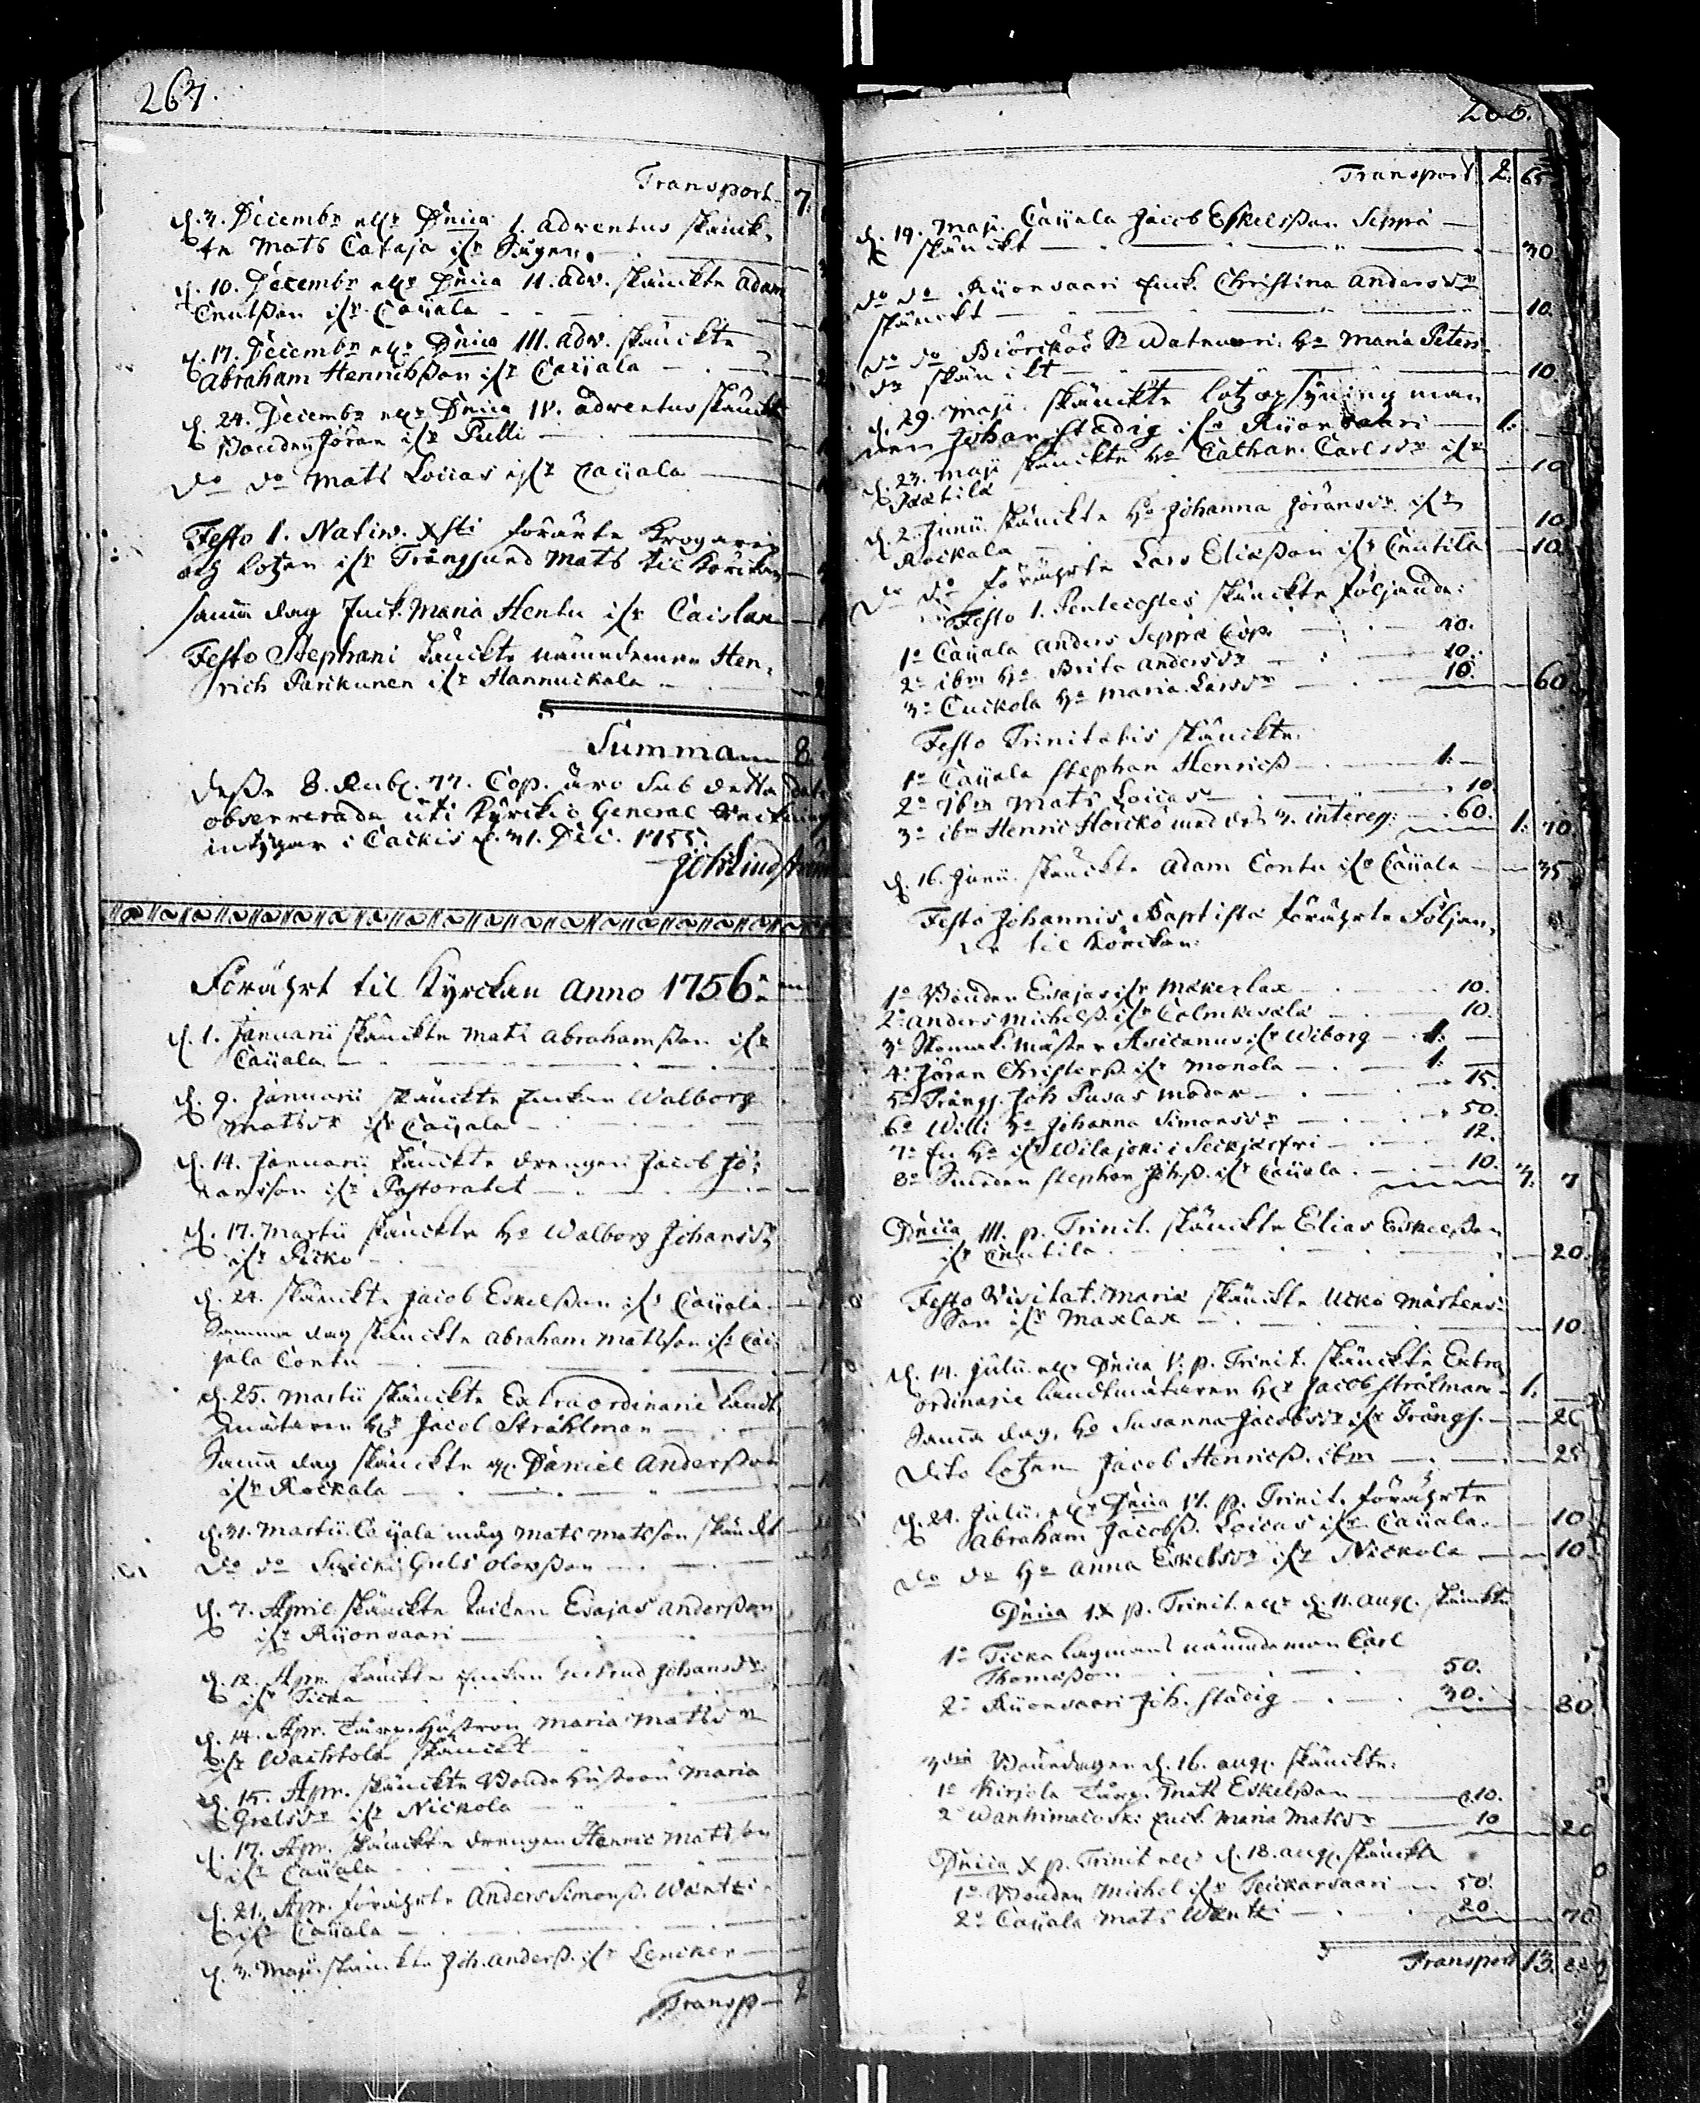 264.
Transport. 7.
d. 3. Decembr eller Dnica 1. adventus skänck-
te Mats Cataja ifr
d. 10. Decembr eller Dnica II. adv. skänckte Adam
Cnutsson ifr Caijala
d. 17. Decembr eller Dnica III. adv. skänckte
Abraham Henricsson ifr Caijala
d. 24. Decembr eller Dnica IV. adventus skänckte
Bonden Jöran ifr Pulli
do do Mats Loccas ifr Caijala
Festo 1. Nativ. Xsti förärte Krogaren
och Lotzen ifr Trångsund Mats til Körckan
samma dag Enck. Maria Hentu ifr Caislax
Festo Stephani skänckte nämndeman Hen-
rich Parikunen ifr Hannuckala
Summa 8.
desse 8. Rub. 77. Cop. äro sub detta dato
observerade uti Kyrckio General Räckning
intygar i Cackis d. 31. Dec. 1755.
Joh Lindström
Förährt til Kyrckan Anno 1756.
d. 1. Januarii skänckte Mats Abrahamsson ifr
Caijala
d. 9. Januarii skänckte Enckan Walborg
Matsdr ifr Caijala
d. 14. Januarii skänckte drengen Jacob Jö-
ransson ifr Pastoratet
d. 17. Martii skänckte Ho Walborg Johansdr
ifr Picko
d. 24. skänckte Jacob Eskelsson ifr Caijala
Samma dag skänckte Abraham Matsson ifr Cai-
jala Contu
d. 25. Martii skänckte Extraordinarie Landt-
mätaren Hr Jacob Stråhlman
Samma dag skänckte Daniel Andersson
ifr Rockala
d. 31. Martii Caijala måg Mats Matsson skänckt
do do Guls Olofsson
d. 7. April skänckte Esajas Andersson
ifr Rijonsaari
d. 12. Apr. skänckte Enckan Gertrud Johansdr
ifr Ticka
d. 14. Apr. Hustron Maria Matsdr
ifr Wachtola skänckt
d. 15. Apr. skänckte Bonde Hustron Maria
Grelsdr ifr Nickola
d. 17. Apr. skänckte drengen Henric Matsson
ifr Caijala
d. 21. Apr. förährte Anders Simonss. Wäntti
ifr Caijala
d. 3. Maji skänckte Joh. Anderss. ifr
Transp 2
265.
Transport 2. 65
d. 19. Maji. Caijala Jacob Eskelsson Seppä
skänckt 30.
do do Rijonsaari Enck. Christina Andersdr
skänckt 10.
do do Biörckö Sn Watnuori Ho Maria Peters-
dr skänckt 10.
d. 29. Maji. skänckte Lotz opsyningsman
nen Johan Städig ifr Rijonsaari 1.
d. 23. Maji skänckte Ho Cathar. Carlsdr ifr
Jaatila 10
d. 2. Junii skänckte Ho Johanna Jöransdr ifr
Rockala 10
do do förährte Lars Eliasson ifr Cnutila 10.
Festo 1. Pentecostes skänckte följande:
1o Caijala Anders Seppä Cop. 40.
2o ibm Ho Brita Andersdr 10.
3o Cuckola Ho Maria Larsdr 10. 60
Festo Trinitatis skänckte.
1o Caijala Stephan Henricss 1.
2o ibm Mats Loccas 10.
3o ibm Henric Horcko med des 3. interess: 60. 1: 70.
d. 16. Junii. skänckte Adam Contu ifr Caijala 35
Festo Johannis Baptistæ förährte Följan-
de til Körckan:
1o Bonden Esajas ifr Makerlax 10.
2o Anders Michelss. ifr Colmkesälä 10.
3o Skomak. Mäster Asicanus ifr Wiborg 1.
4o Jöran Christerss. ifr Monola 1.
5o Trångs. Joh Pasas moder 15.
6o Willi Ho Johanna Simonsdr 50.
7o En Ho ifr Wilajoki i Seckjärfvi 12.
8o Smeden Stephan Johss. ifr Caijala 10. 3. 7
Dnica III. p. Trinit. skänckte Elias Eskelsson
ifr Cnutila 20.
Festo Visitat. Mariæ skänckte Ucko Mårtens-
son ifr Maxlax 10.
d. 14. Julii eller Dnica V. p. Trinit. skänckte Extra
ordinarie Landtmätaren Hr Jacob Strålman 1.
Samma dag, Ho Susanna Jacobsdr ifr Trångs. 20
Dito Lotzen Jacob Henricss. ibm 25
d. 21. Julii eller Dnica VI. p. Trinit. förährte
Abraham Jacobss. Loccas ifr Caijala 10
do do Ho Anna Eskelsdr ifr Nickola 10
Dnica IX p. Trinit. eller d. 11. Aug. skänckte
1o Ticka Lagmans nämndeman Carl
Thomasson 50.
2o Rijonsaari Joh. Städig 30. 80
3die Bönedagen d. 16. Aug. skänckte:
1o Kirjola Mats Eskelsson 10.
2o Wanhimaloski Enck. Maria Matsdr 10 20
Dnica X p. Trinit eller d. 18. Aug. skänckte
1o Bonden Michel ifr Teickarsaari 50.
2o Caijala Mats Wäntti 20 70
Transport 13. 22